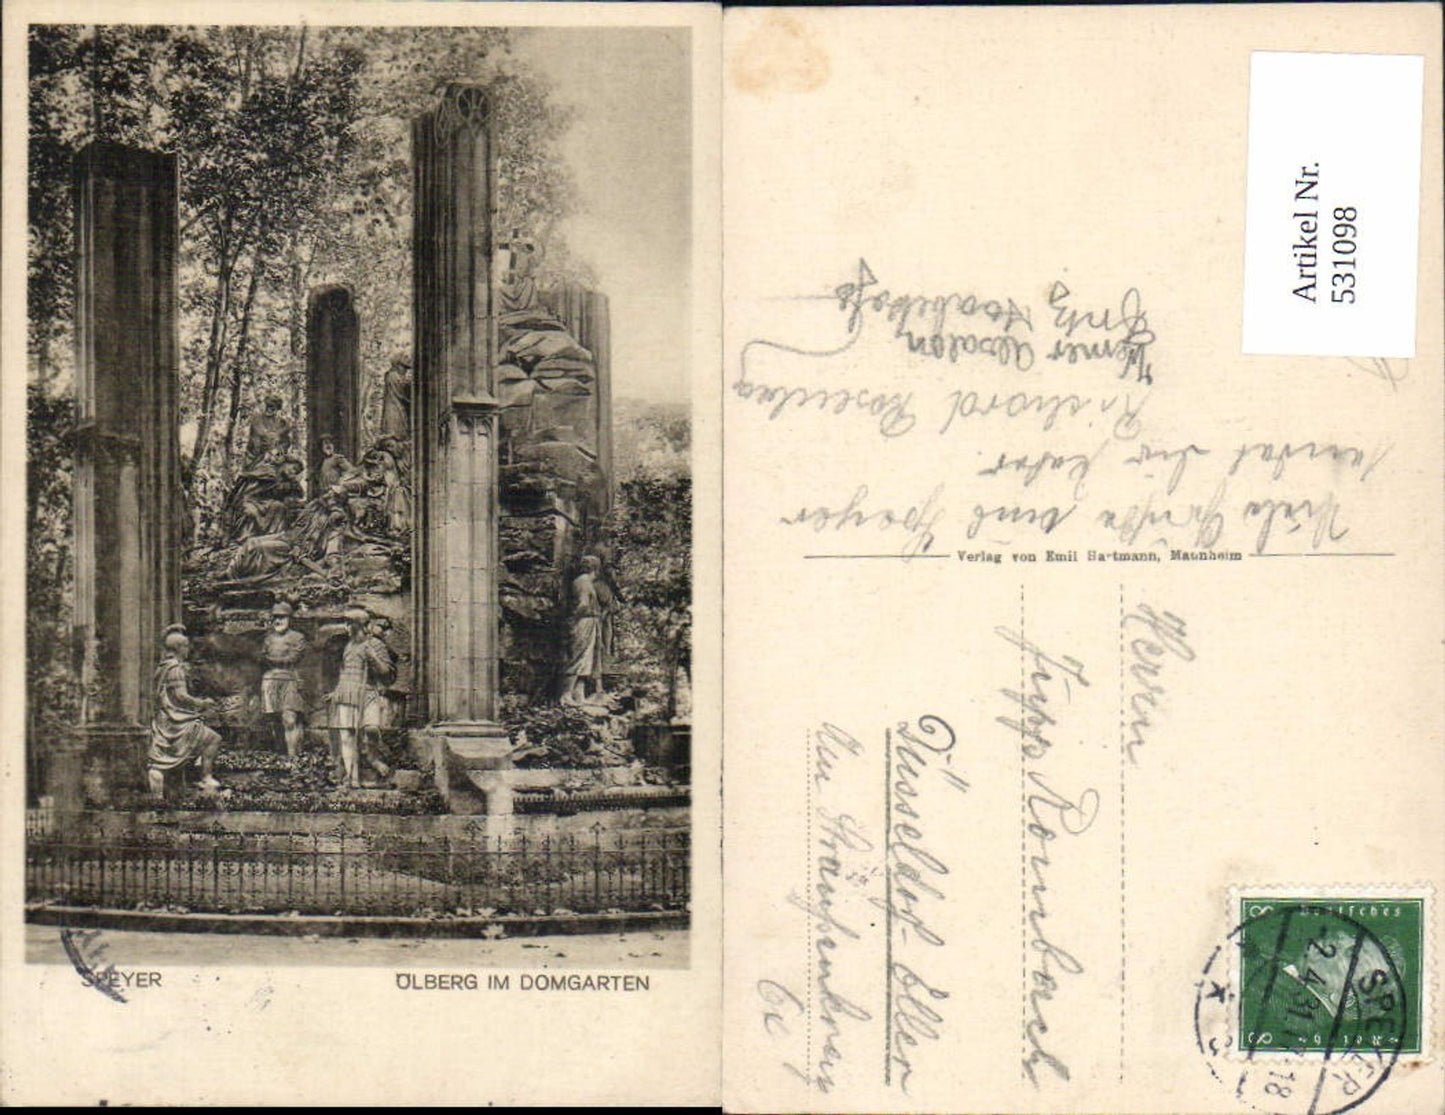 SPEYER
ÖLBERG IM DOMGARTEN
Artikel Nr.
531098
Viele Grüße aus Speyer
sendet Dir
Richard
Werner
Fritz
Verlag von Emil Hartmann, Mannheim
Herrn
Jupp Rombach
Düsseldorf-Eller
Am Straußenkreuz
Deutsches
8 8
SPEYER
-2.4.31. 17-18